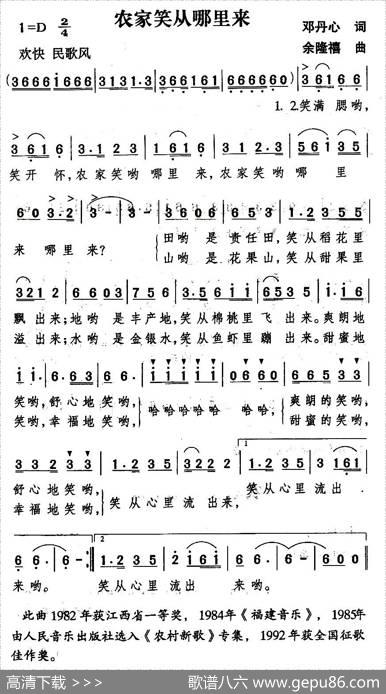 农家笑从哪里来
1=D 2/4
邓丹心 词
欢快 民歌风
余隆禧 曲
(3666i666 | 3131.3 | 366161 | 666660) | 3 616 6 |
1. 2.笑满 腮哟,
3 616 | 3.1 2 3 | 3 6 1 6 | 3.1 2 3 | 5 6 1 3 5 |
笑开 怀,农家笑哟 哪里 来,农家笑哟 哪 里
6 0 3.2 | 3 - | 3 - | 3 6 0 6 | 6 5 3 | 1.2 3 5 5 |
来 哪里来? 田哟 是 责任田,笑从稻花里
山哟 是 花果山,笑从甜果里
3 2 1 2 | 6 6 0 3 | 7 5 6 | 3.5 6 1 1 | 6 5 3 5 | i.i 6 |
飘 出来;地哟 是 丰产地,笑从棉桃里 飞 出来。爽朗地
溢 出来;水哟 是 金银水,笑从鱼虾里 蹦 出来。甜蜜地
i i. | 6.6 3 3 | 6 6. | i i i i i | 0 6 6 0 | 6 6 5 3 3 |
笑哟,舒心地笑哟, 哈哈哈哈哈 哈哈, 爽朗的笑哟,
笑哟,幸福地笑哟, 甜蜜的笑哟,
3 3 2 3 3 | 1.2 3 5 | 3 2 2 2 | 1.2 3 5 | 3 1 6 1 |
舒心地笑哟, 笑从心里流 出来, 笑从心里流出
幸福地笑哟,
6 6. | 6 6. :| 1.2 3 5 | 2 1 6 1 | 6 - | 6 - | 6 0 0 ||
来哟。 笑从心里流出 来哟。
此曲1982年获江西省一等奖,1984年《福建音乐》,1985年
由人民音乐出版社选入《农村新歌》专集,1992年获全国征歌
佳作奖。
高清下载 >>>
歌谱八六 www.gepu86.com